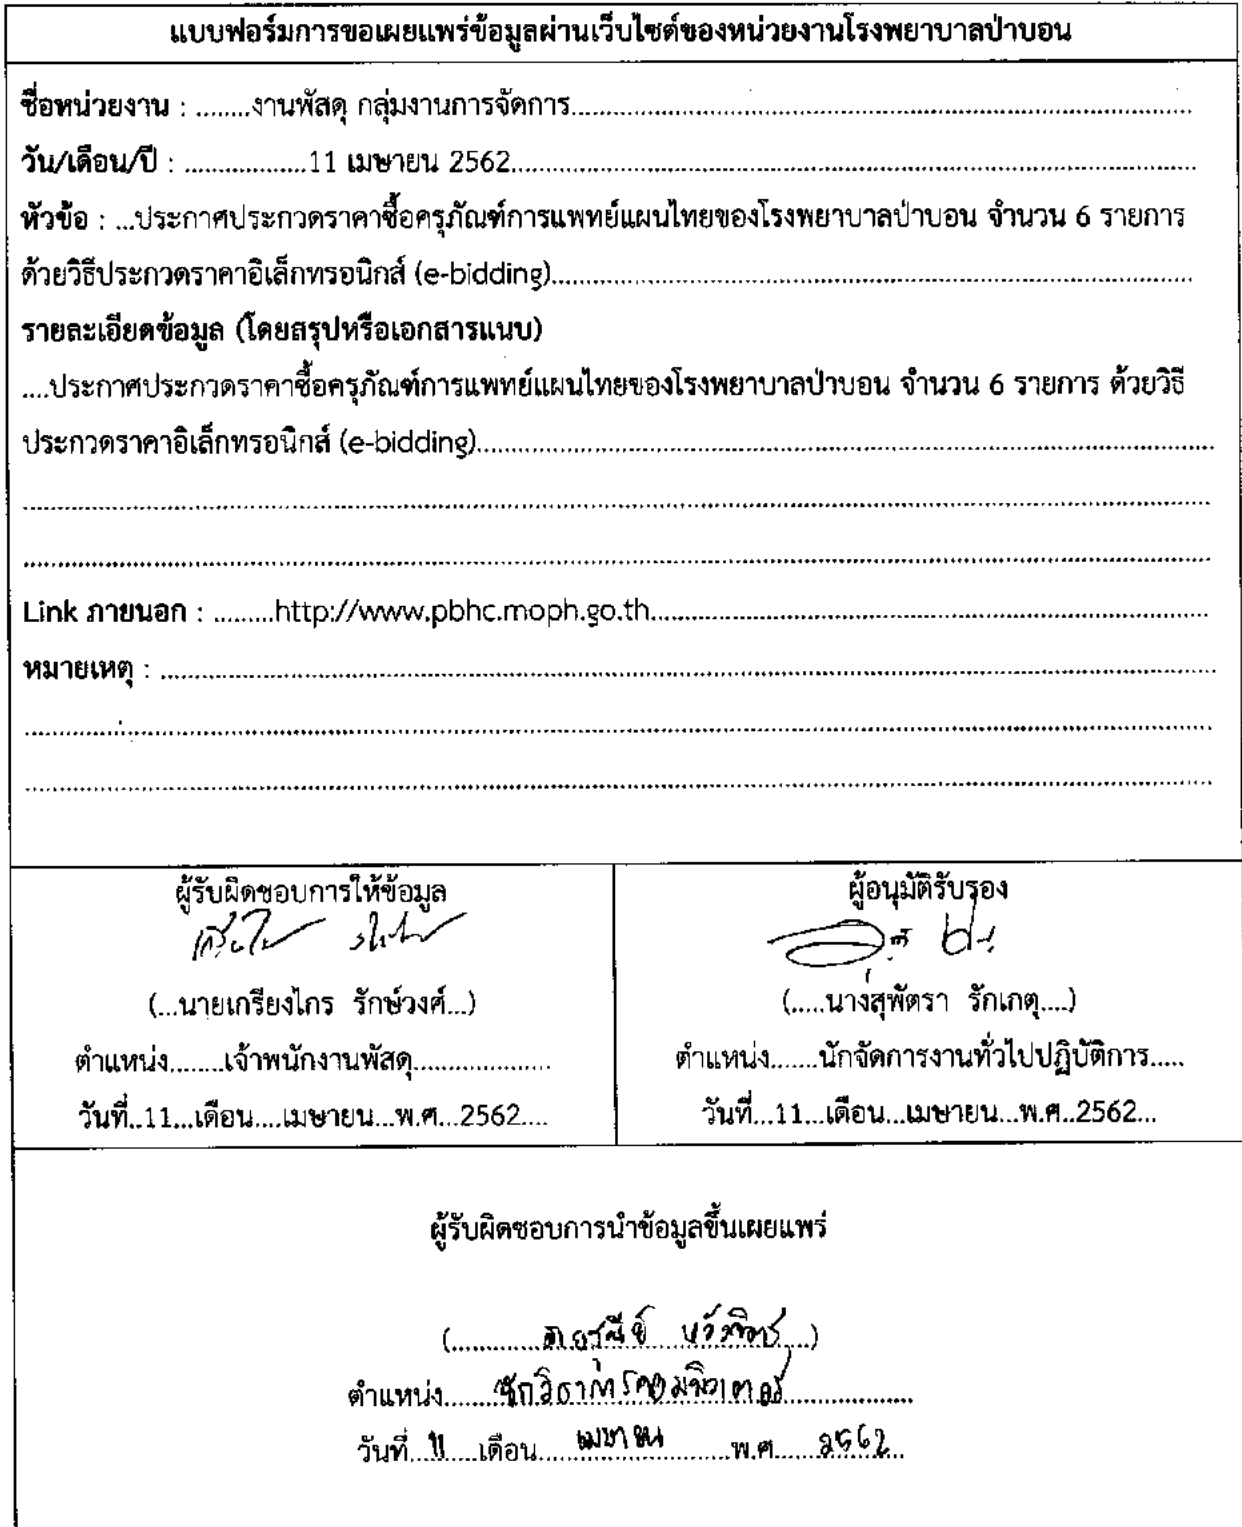 แบบฟอร์มการขอเผยแพร่ข้อมูลผ่านเว็บไซต์ของหน่วยงานโรงพยาบาลป่าบอน
ชื่อหน่วยงาน : ........งานพัสดุ กลุ่มงานการจัดการ........
วัน/เดือน/ปี : ........11 เมษายน 2562........
หัวข้อ : ...ประกาศประกวดราคาซื้อครุภัณฑ์การแพทย์แผนไทยของโรงพยาบาลป่าบอน จำนวน 6 รายการ
ด้วยวิธีประกวดราคาอิเล็กทรอนิกส์ (e-bidding)........
รายละเอียดข้อมูล (โดยสรุปหรือเอกสารแนบ)
....ประกาศประกวดราคาซื้อครุภัณฑ์การแพทย์แผนไทยของโรงพยาบาลป่าบอน จำนวน 6 รายการ ด้วยวิธี
ประกวดราคาอิเล็กทรอนิกส์ (e-bidding)........
Link ภายนอก : .........http://www.pbhc.moph.go.th........
หมายเหตุ : ........
ผู้รับผิดชอบการให้ข้อมูล
(...นายเกรียงไกร รักษ์วงศ์...)
ตำแหน่ง........เจ้าพนักงานพัสดุ........
วันที่..11...เดือน....เมษายน...พ.ศ...2562....
ผู้อนุมัติรับรอง
(.....นางสุพัตรา รักเกตุ....)
ตำแหน่ง.......นักจัดการงานทั่วไปปฏิบัติการ.....
วันที่...11...เดือน...เมษายน...พ.ศ..2562...
ผู้รับผิดชอบการนำข้อมูลขึ้นเผยแพร่
ตำแหน่ง......นักวิชาการคอมพิวเตอร์........
วันที่..11....เดือน....เมษายน....พ.ศ......2562..